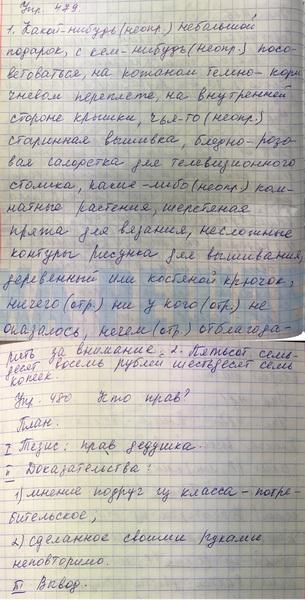 Упр. 479
1. Какой-нибудь (неопр.) небольшой
подарок, с кем-нибудь (неопр.) посо-
ветоваться, на кожаном темно-кори-
чневом переплете, на внутренней
стороне крышки, чья-то (неопр.)
старинная вышивка, бледно-розо-
вая салфетка для телевизионного
столика, какие-либо (неопр.) ком-
натные растения, шерстяная
пряжа для вязания, несложные
контуры рисунка для вышивания,
деревянный или костяной крючок,
ничего (отр.) ни у кого (отр.) не
оказалось, нечем (отр.) отблагода-
рить за внимание. 2. Пятьсот семь-
десят восемь рублей шестьдесят семь
копеек.
Упр. 480 Кто прав?
План.
I Тезис: прав дедушка.
II Доказательства:
1) мнение подруг из класса - потре-
бительское,
2) сделанное своими руками
неповторимо.
III Вывод.